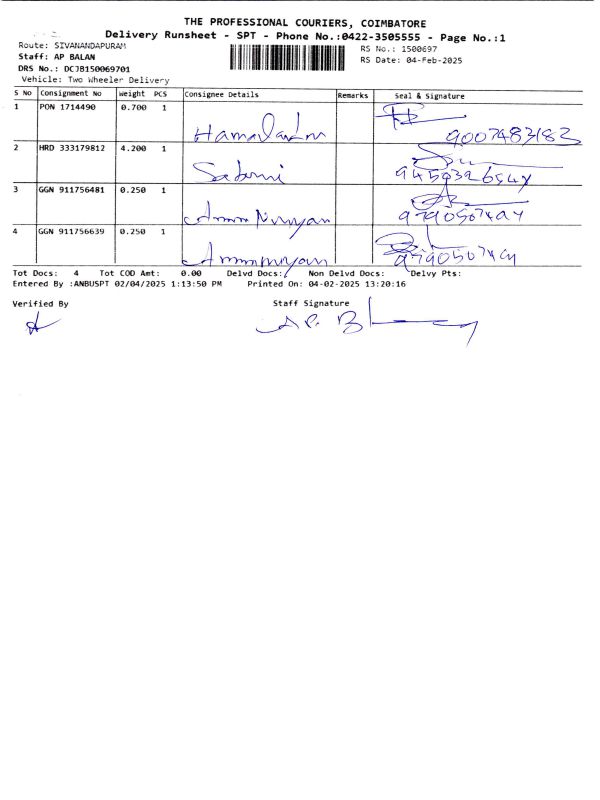 THE PROFESSIONAL COURIERS, COIMBATORE
Delivery Runsheet - SPT - Phone No.:0422-3505555 - Page No.:1
Route: SIVANANDAPURAM
RS No.: 1500697
Staff: AP BALAN
RS Date: 04-Feb-2025
DRS No.: DCJB150069701
Vehicle: Two Wheeler Delivery
S No Consignment No Weight PCS Consignee Details Remarks Seal & Signature
1 PON 1714490 0.700 1
9007483182
2 HRD 333179812 4.200 1
3 GGN 911756481 0.250 1
4 GGN 911756639 0.250 1
Tot Docs: 4 Tot COD Amt: 0.00 Delvd Docs: Non Delvd Docs: Delvy Pts:
Entered By :ANBUSPT 02/04/2025 1:13:50 PM Printed On: 04-02-2025 13:20:16
Verified By Staff Signature